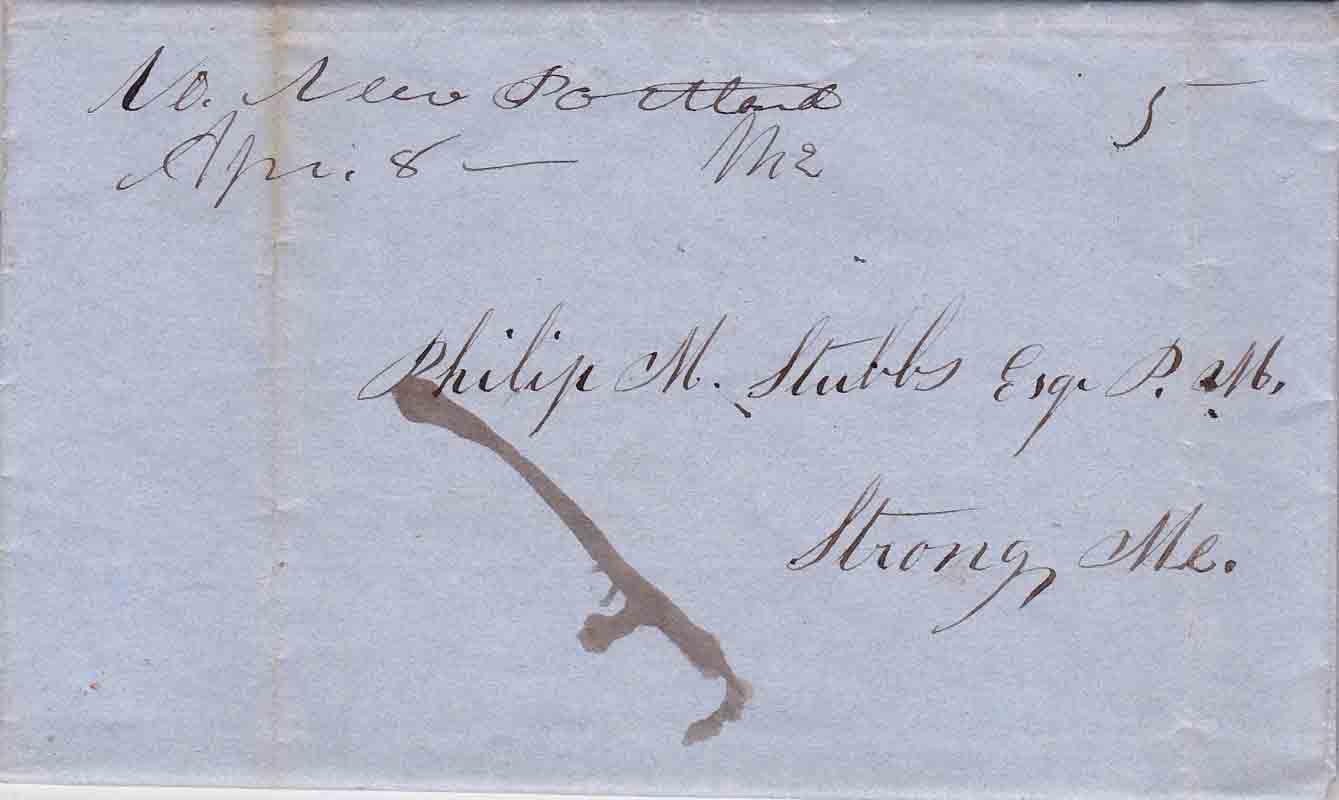 No. New Portland 5
Apr. 8 — Me
Philip M. Stubbs Esqr P. M.
Strong, Me.